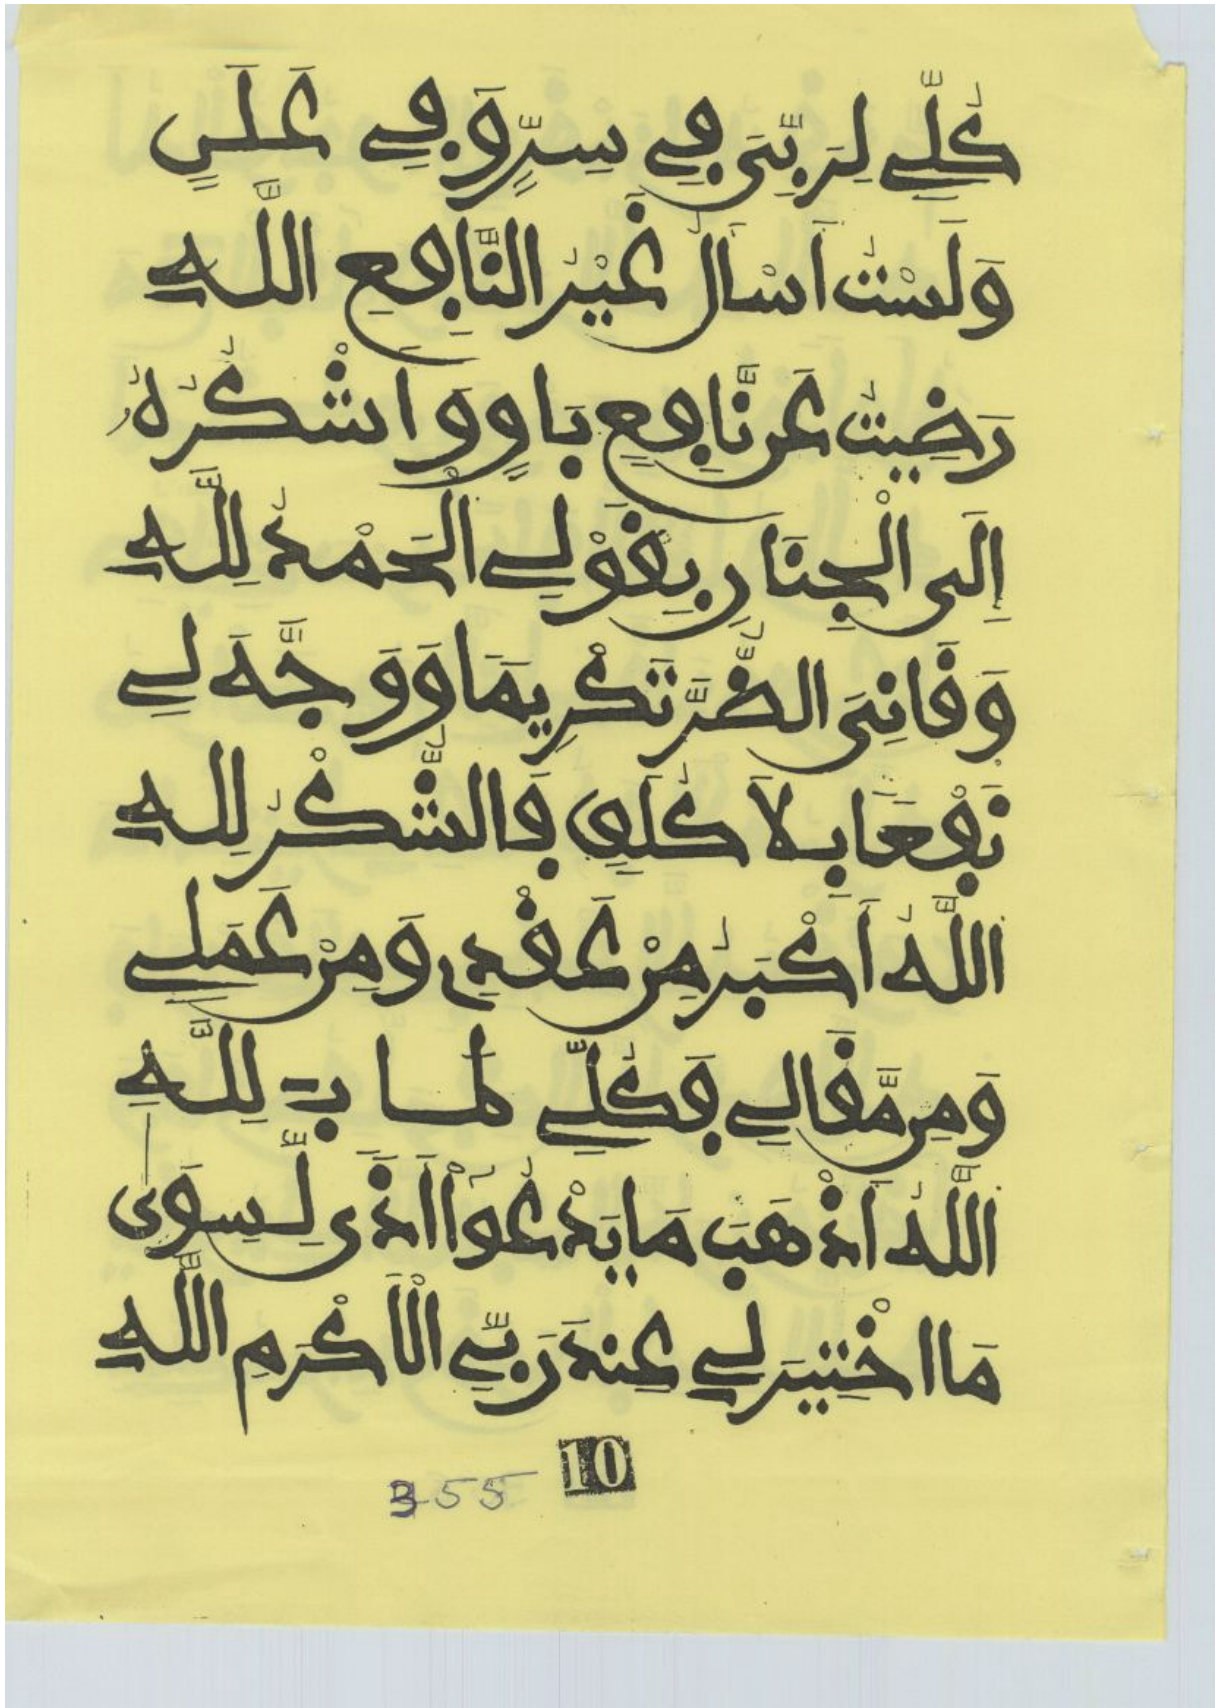 كُلِّے لِرَبِّىَ فِے سِرٍّ وَفِے عَلَنٍ
وَلَسْتُ اَسْاَلُ غَيْرَ النَّافِعِ اللَّهِ
رَضِيتُ عَن نَّافِعٍ بَاوٍ وَاَشْكُرُهُ
اِلَى الْجِنَانِ بِقَوْلِے الْحَمْدُ لِلَّهِ
وَقَانِىَ الضُّرَّ تَكْرِيمًا وَوَجَّهَ لِے
نَفْعًا بِلَا كُلَفٍ فَالشُّكْرُ لِلهِ
اللَّهُ اَكْبَرُ مِنْ عَقْدِے وَمِنْ عَمَلِے
وَمِن مَّقَالِے فَكُلِّے لَمَا بِـ لِلَّهِ
اللَّهُ اَذْهَبَ مَا يَدْعُواْ اَذَى لِّسِوَىَ
مَا اخْتِيرَ لِے عِندَ رَبِّے الْاَكْرَمِ اللَّهِ
10
355